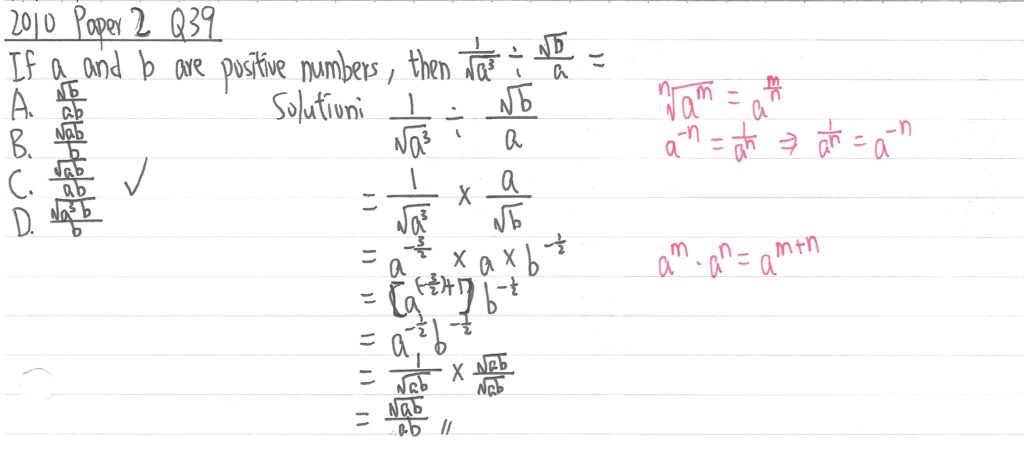 2010 Paper 2 Q39
If a and b are positive numbers, then 1/√a³ ÷ √b/a =
A. √b/ab
B. √ab/b
C. √ab/ab ✓
D. √a³b/b
Solution: 1/√a³ ÷ √b/a
= 1/√a³ × a/√b
= a^(-3/2) × a × b^(-1/2)
= [a^((-3/2)+1)] b^(-1/2)
= a^(-1/2) b^(-1/2)
= 1/√ab × √ab/√ab
= √ab/ab //
ⁿ√a^m = a^(m/n)
a^(-n) = 1/a^n ⇒ 1/a^n = a^(-n)
a^m · a^n = a^(m+n)